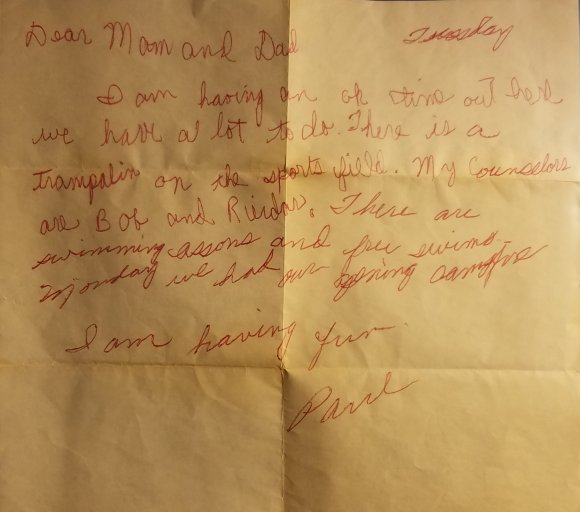 Dear Mom and Dad Tuesday
I am having an ok time out here
we have a lot to do. There is a
trampalin on the sports field. My Counselors
are Bob and . There are
swimming assons and free swims.
Monday we had our opening campfire
I am having fun.
Paul